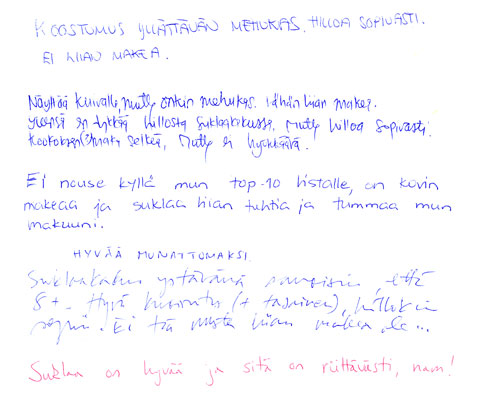 KOOSTUMUS YLLÄTTÄVÄN MEHUKAS. HILLOA SOPIVASTI.
EI LIIAN MAKEA.
Näyttää kuivalle, mutta onkin mehukas. Vähän liian makea.
Yleensä en tykkää hillosta suklaakakussa, mutta hilloa sopivasti.
Kookoksen(?) maku selkeä, mutta ei hyökkäävä.
Ei nouse kyllä mun top-10 listalle, on kovin
makeaa ja suklaa liian tuhtia ja tummaa mun
makuuni.
HYVÄÄ MUNATTOMAKSI.
Suklaakakun ystävänä sanoisin, että
8+. Hyvä kuorrutus (+ tasainen), hillokin
sopii. Ei tää musta liian makea ole...
Suklaa on hyvää ja sitä on riittävästi, nam!